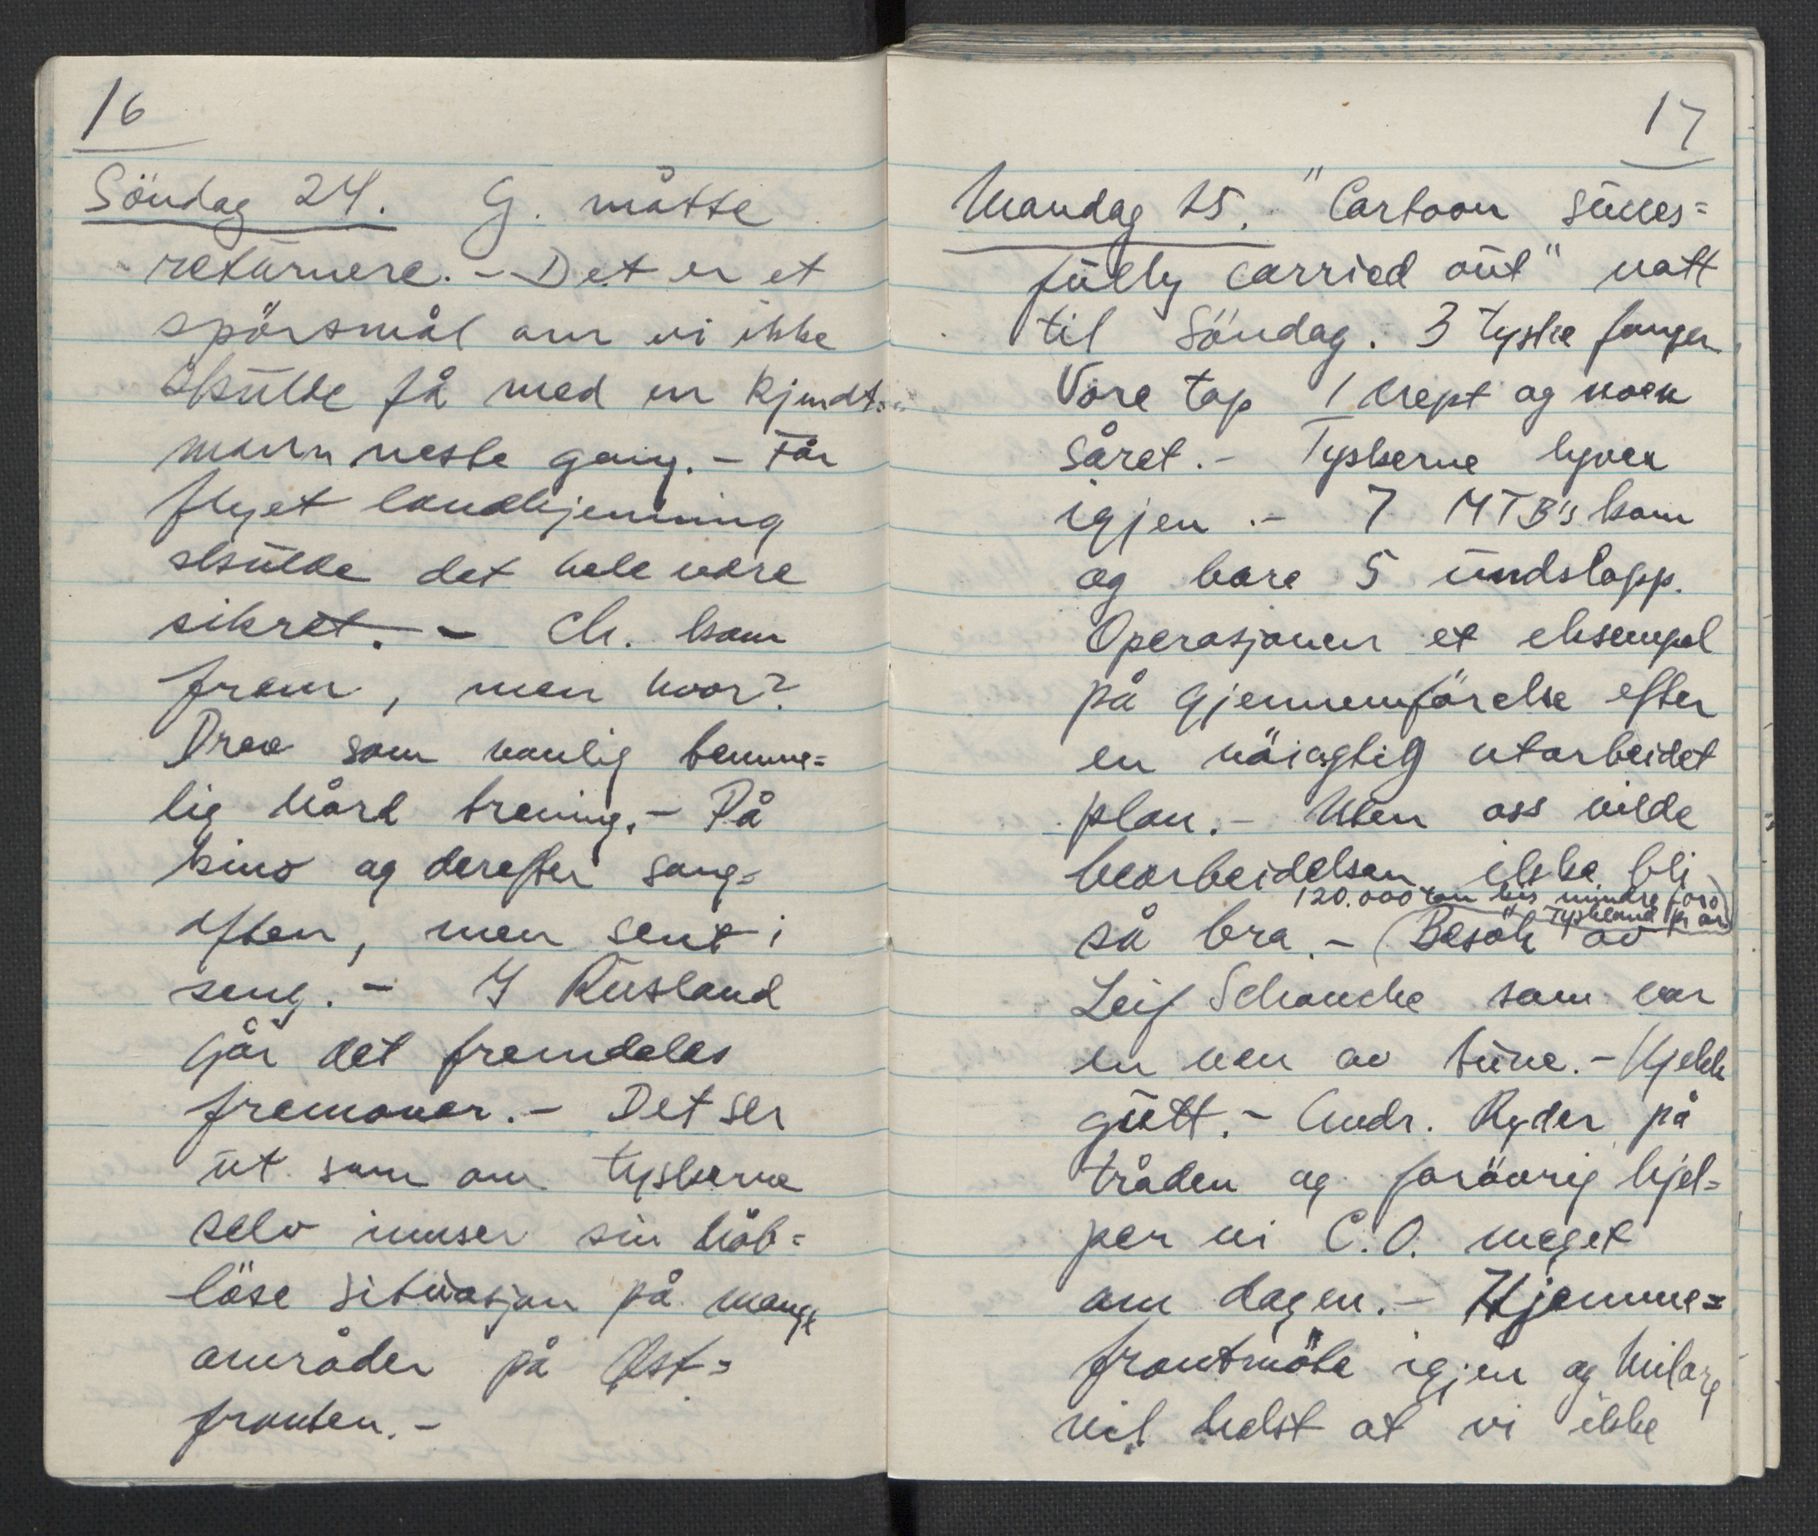 16
Söndag 24. G. måtte
returnere. - Det er et
spörsmål om vi ikke
skulde få med en kjendt=
mann neste gang. - Får
flyet landkjenning
skulde det hele være
sikret. - Ch. kom
frem, men hvor?
Drev som vanlig temme=
lig hård trening. - På
kino og derefter sang=
aften, men sent i
seng. - I Rusland
går det fremdeles
fremover. - Det ser
ut som om tyskerne
selv innser sin håb=
löse situasjon på mange
områder på Öst=
fronten. -
17
Mandag 25. "Cartoon succes=
fully carried out" natt
til Söndag. 3 tyske fanger
Våre tap 1 drept og noen
såret. - Tyskerne lyver
igjen. - 7 MTB's kom
og bare 5 undslapp.
Operasjonen et eksempel
på gjennemförelse efter
en nöiagtig utarbeidet
plan. - Uten oss vilde
bearbeidelsen ikke bli
120.000 ton kis mindre for
Tyskland pr år
så bra. - (Besök av
Leif Schanche som var
en ven av Tune. - Kjekk
gutt. - Andr. Ryder på
tråden og foröwrig hjel=
per vi C.O. meget
om dagen. - Hjemme=
frontmöte igjen og Milorg
vil helst at vi ikke